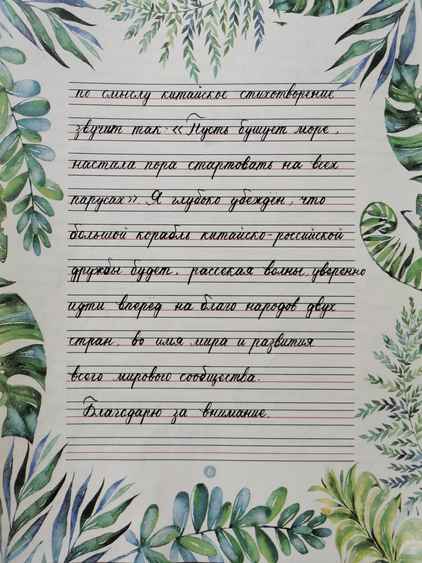 по смыслу китайское стихотворение
звучит так: «Пусть бушует море,
настала пора стартовать на всех
парусах». Я глубоко убеждён, что
большой корабль китайско-российской
дружбы будет, рассекая волны, уверенно
идти вперёд на благо народов двух
стран, во имя мира и развития
всего мирового сообщества.
Благодарю за внимание.
6